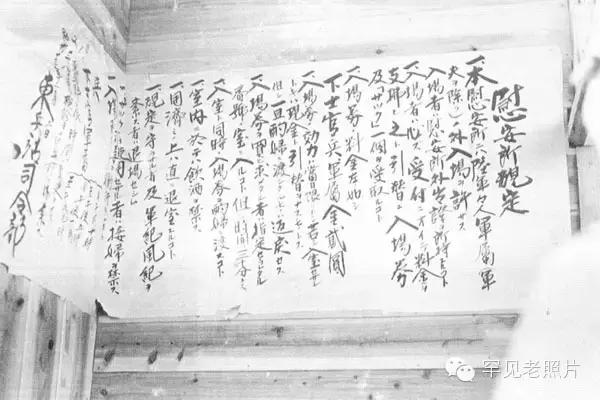 慰安所規定
一、本慰安所ニハ陸軍々人軍属(軍
夫ヲ除ク)ノ外入場ヲ許サス
一、入場者ハ慰安所外出証ヲ所持スルコト
一、入場者ハ必ス受付ニオイテ料金ヲ
支拂ヒ之ト引替ニ入場券
及「サック」一個ヲ受取ルコト
一、入場券ノ料金左ノ如シ
下士官、兵、軍属金貳圓
一、入場券ノ効力ハ當日限リトシ若シ入室セサル
トキハ現金ト引替ヲナスモノトス
但シ一旦酌婦ニ渡シタルモノハ返戻セス
一、入場券ヲ買ヒ求メタル者ハ指定セラレタル
番號ノ室ニ入ルコト但シ時間ハ三十分トス
一、入室ト同時ニ入場券ヲ酌婦ニ渡スコト
一、室内ニ於テハ飲酒ヲ禁ス
一、用濟ミノ上ハ直ニ退室スルコト
一、規定ヲ守ラサル者及軍紀風紀ヲ
紊ス者ハ退場セシム
一、サックヲ使用セサル者ハ接婦ヲ禁ス
東兵站司令部
罕见老照片